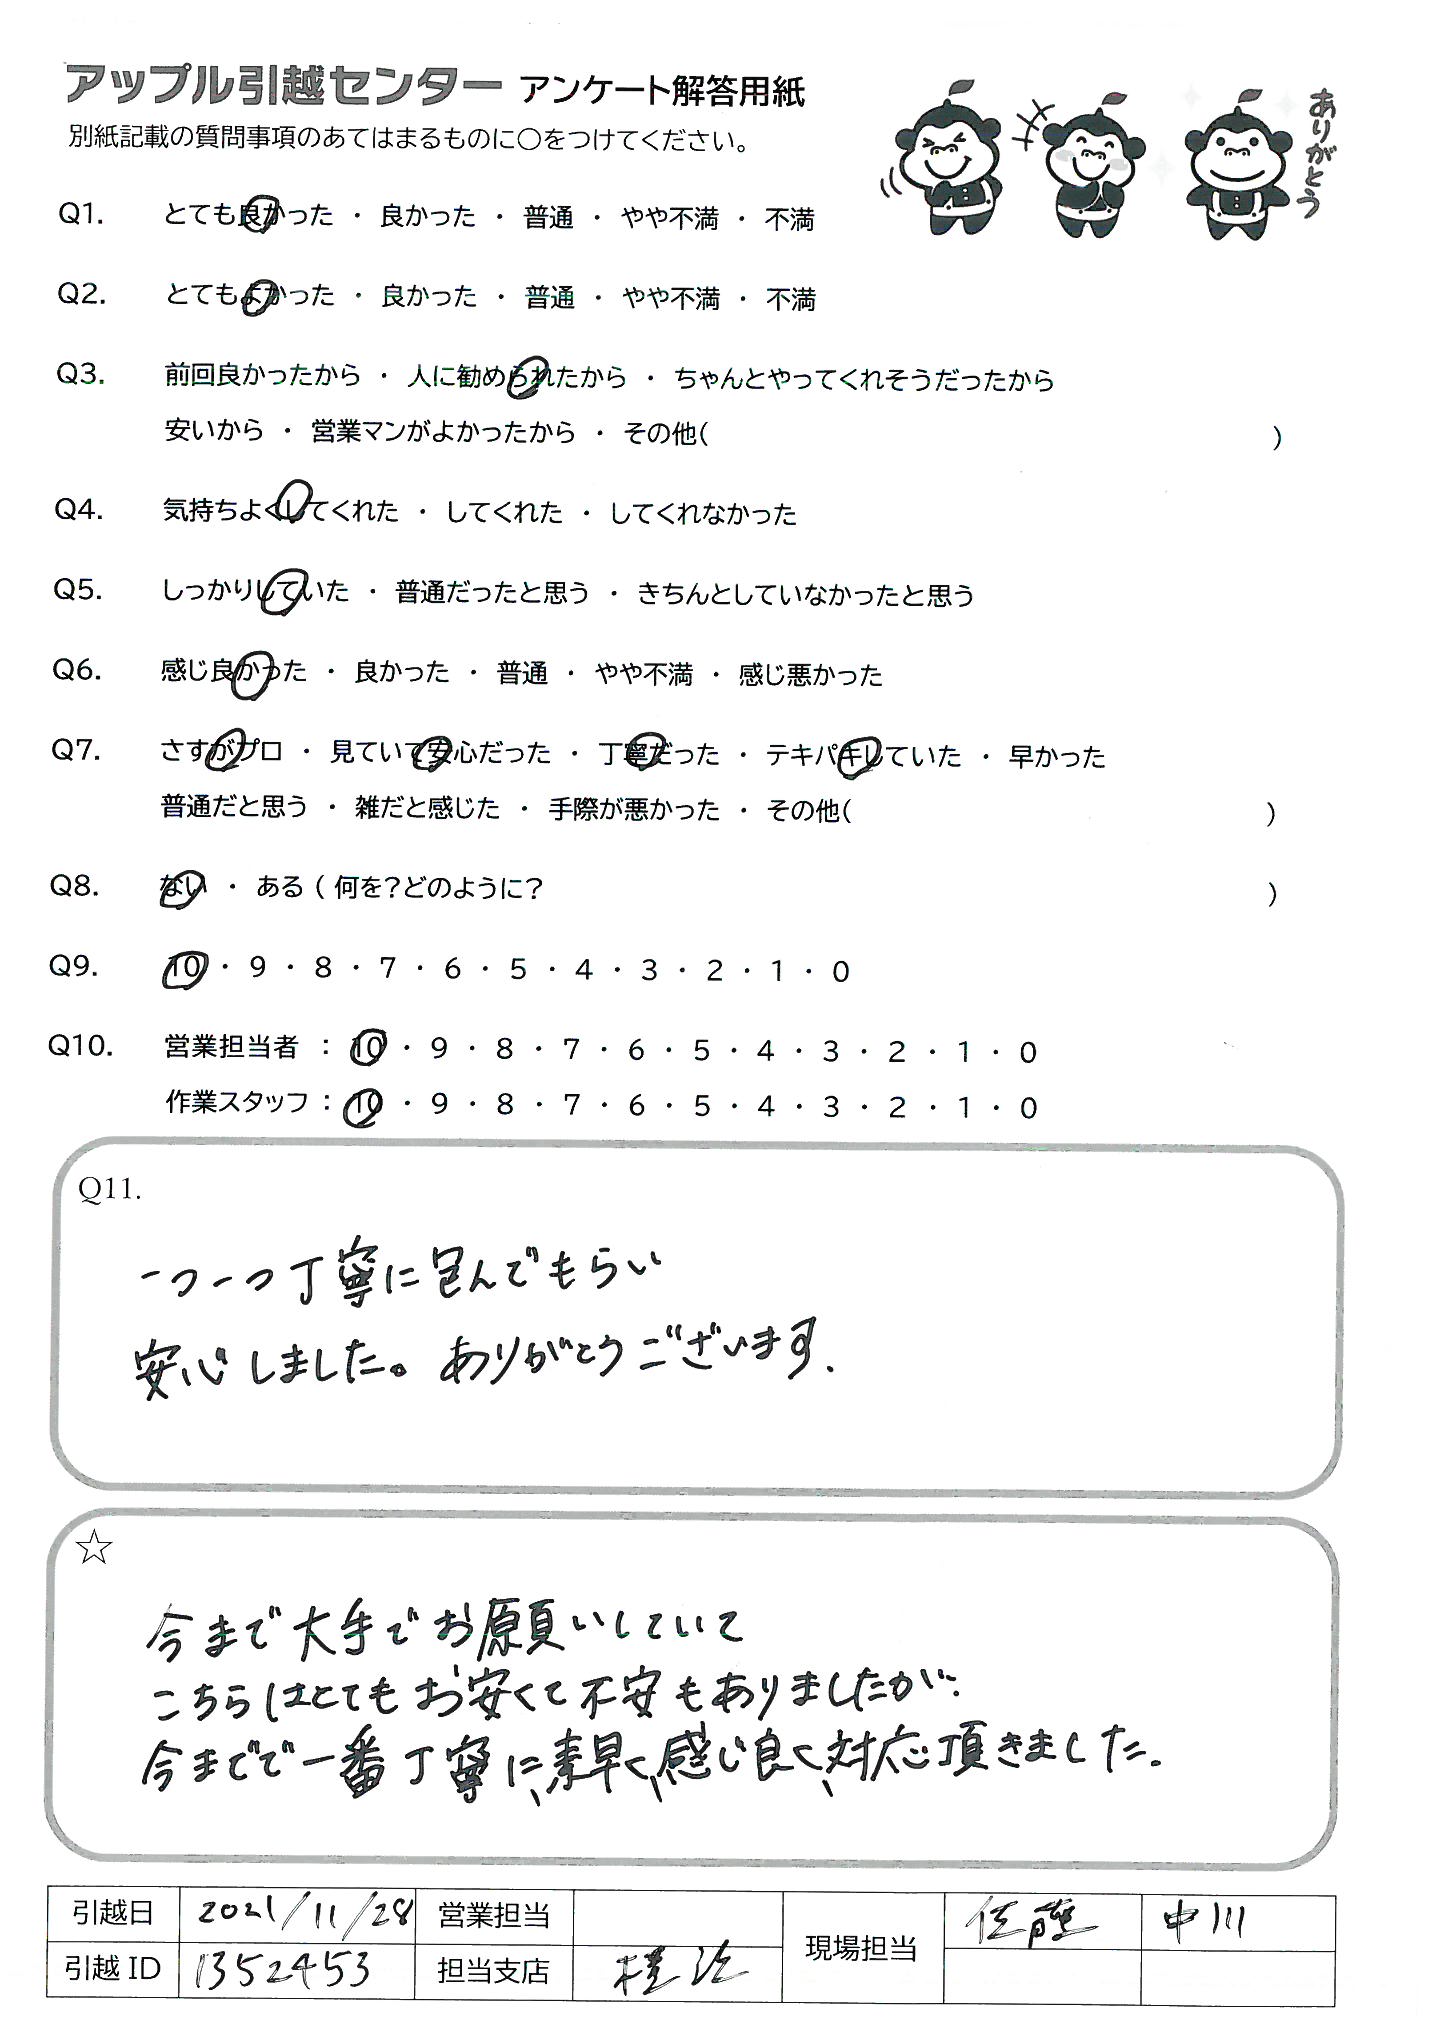 アップル引越センター アンケート解答用紙
別紙記載の質問事項のあてはまるものに〇をつけてください。
ありがとう
Q1. とても良かった ・ 良かった ・ 普通 ・ やや不満 ・ 不満
Q2. とてもよかった ・ 良かった ・ 普通 ・ やや不満 ・ 不満
Q3. 前回良かったから ・ 人に勧められたから ・ ちゃんとやってくれそうだったから
安いから ・ 営業マンがよかったから ・ その他( )
Q4. 気持ちよくしてくれた ・ してくれた ・ してくれなかった
Q5. しっかりしていた ・ 普通だったと思う ・ きちんとしていなかったと思う
Q6. 感じ良かった ・ 良かった ・ 普通 ・ やや不満 ・ 感じ悪かった
Q7. さすがプロ ・ 見ていて安心だった ・ 丁寧だった ・ テキパキしていた ・ 早かった
普通だと思う ・ 雑だと感じた ・ 手際が悪かった ・ その他( )
Q8. ない ・ ある ( 何を?どのように? )
Q9. 10 ・ 9 ・ 8 ・ 7 ・ 6 ・ 5 ・ 4 ・ 3 ・ 2 ・ 1 ・ 0
Q10. 営業担当者 : 10 ・ 9 ・ 8 ・ 7 ・ 6 ・ 5 ・ 4 ・ 3 ・ 2 ・ 1 ・ 0
作業スタッフ : 10 ・ 9 ・ 8 ・ 7 ・ 6 ・ 5 ・ 4 ・ 3 ・ 2 ・ 1 ・ 0
Q11.
一つ一つ丁寧に包んでもらい
安心しました。ありがとうございます.
☆
今まで大手でお願いしていて
こちらはとてもお安くて不安もありましたが、
今までで一番丁寧に、素早く、感じ良く、対応頂きました.
引越日 2021/11/28 営業担当 現場担当 佐藤 中川
引越ID 1352453 担当支店